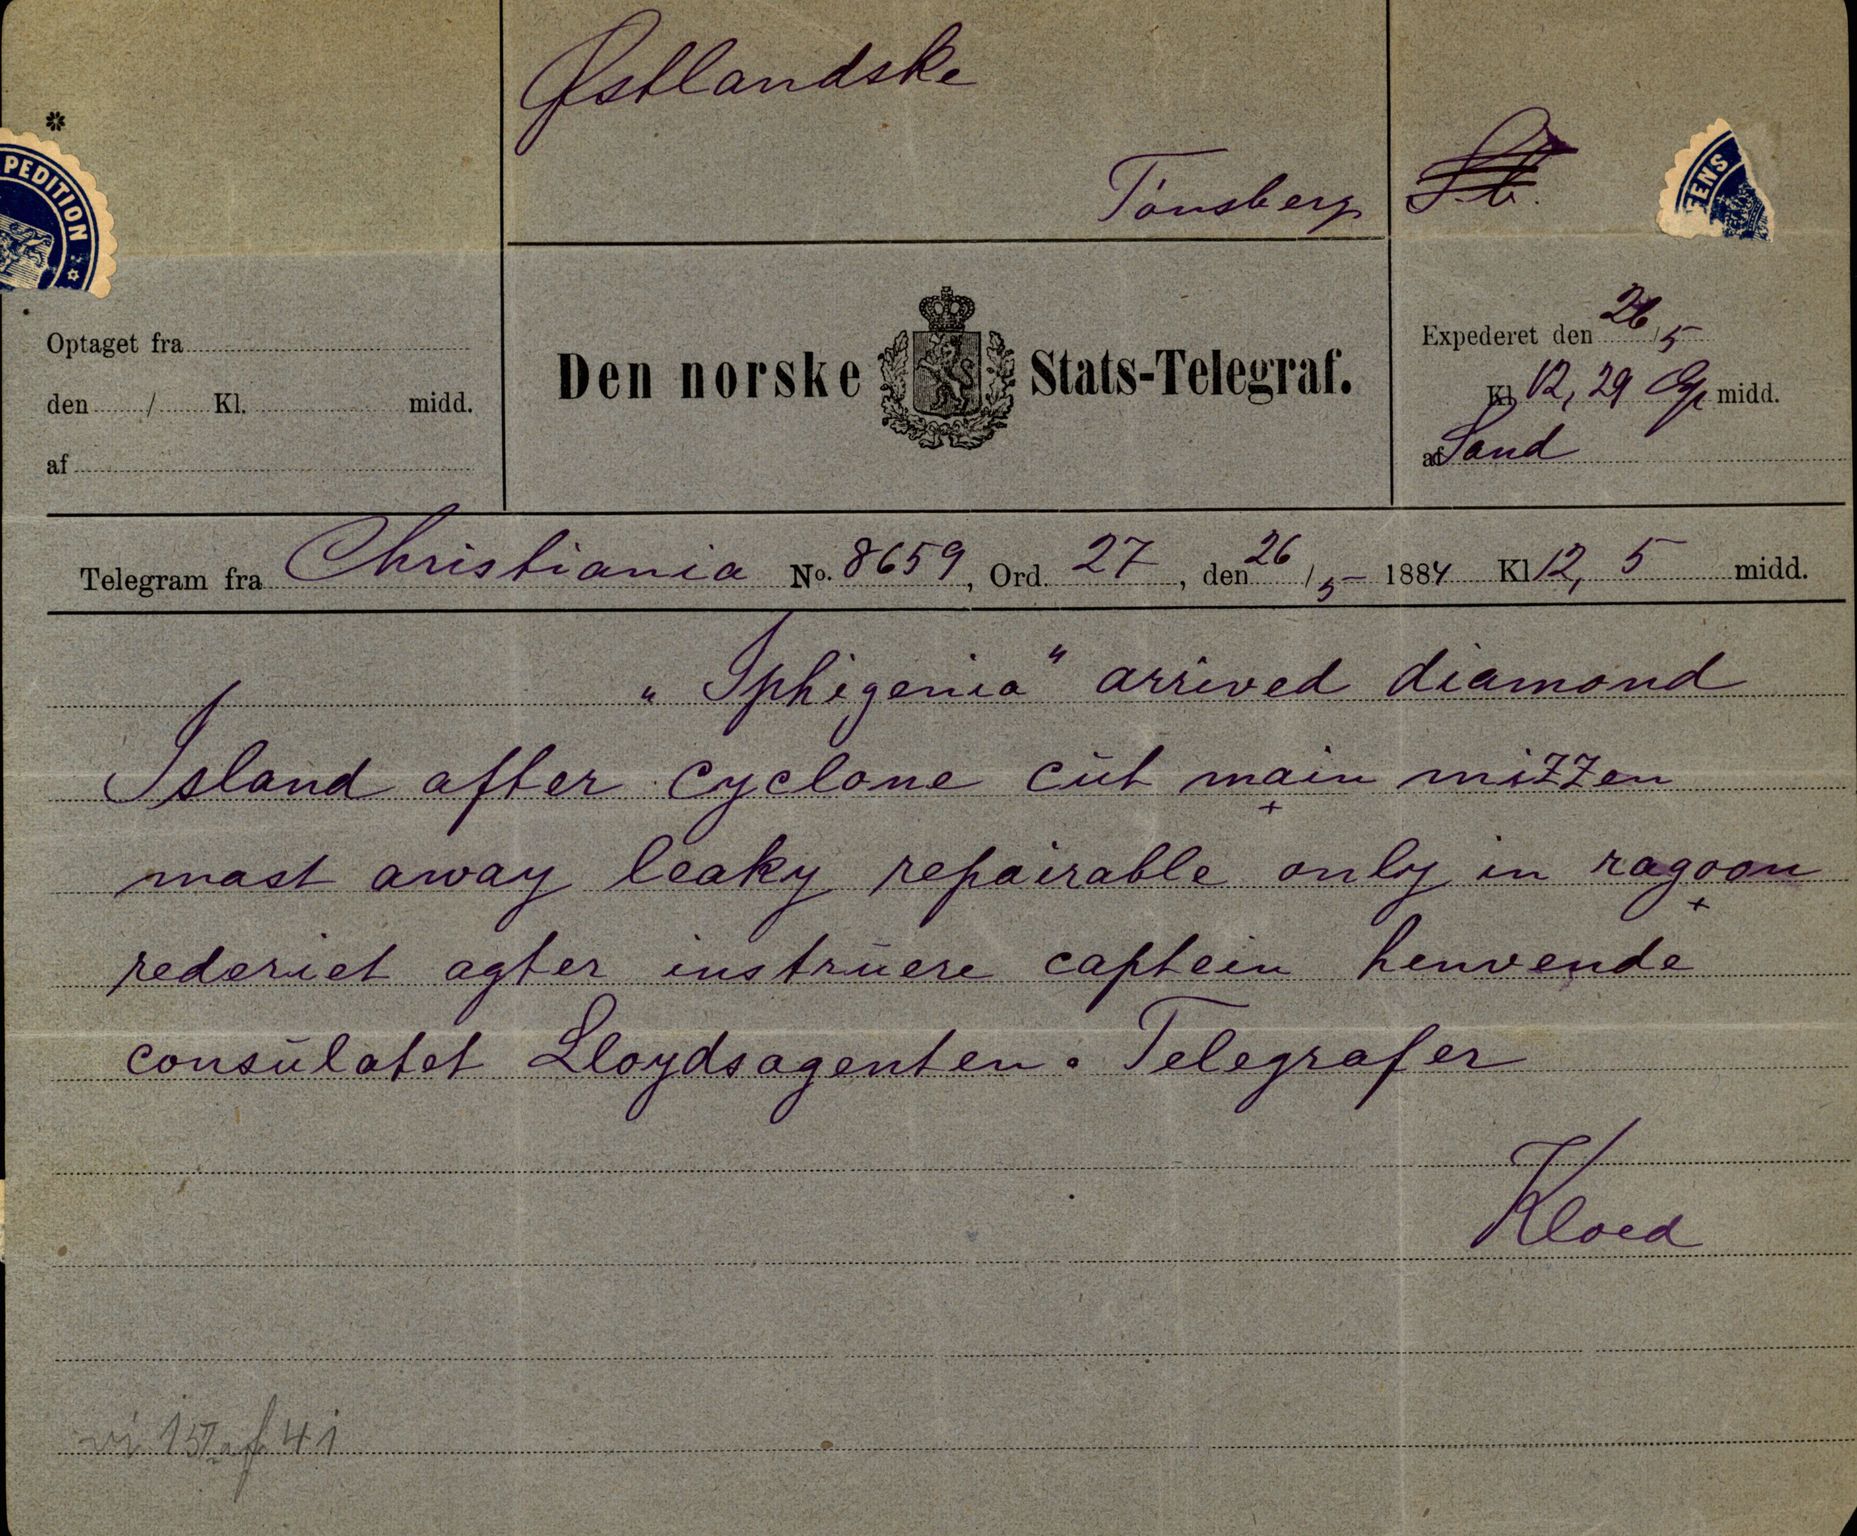 Østlandske
Tönsberg
*
PEDITION
ENS
Optaget fra
den / Kl. midd.
af
Den norske Stats-Telegraf.
Expederet den 26/5
Kl 12,29 Em midd.
af Sand
Telegram fra Christiania No. 8659, Ord. 27, den 26/5 1884 Kl 12,5 midd.
„Iphigenia" arrived diamond
Island after cyclone cut main mizzen
mast away leaky repairable only in ragoon
rederiet agter instruere captein henvende
consulatet Lloydsagenten. Telegrafer
Kloed